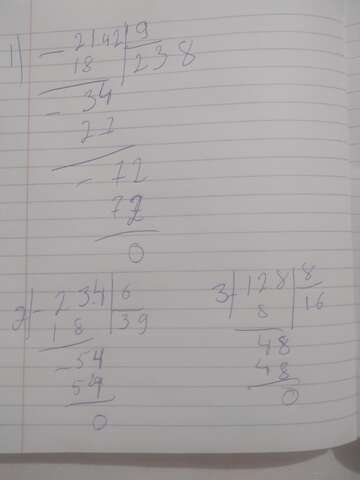 1) - 2142 | 9
18 | 238
- 34
27
- 72
72
0
2) - 234 | 6
18 | 39
- 54
54
0
3) 128 | 8
8 | 16
48
48
0